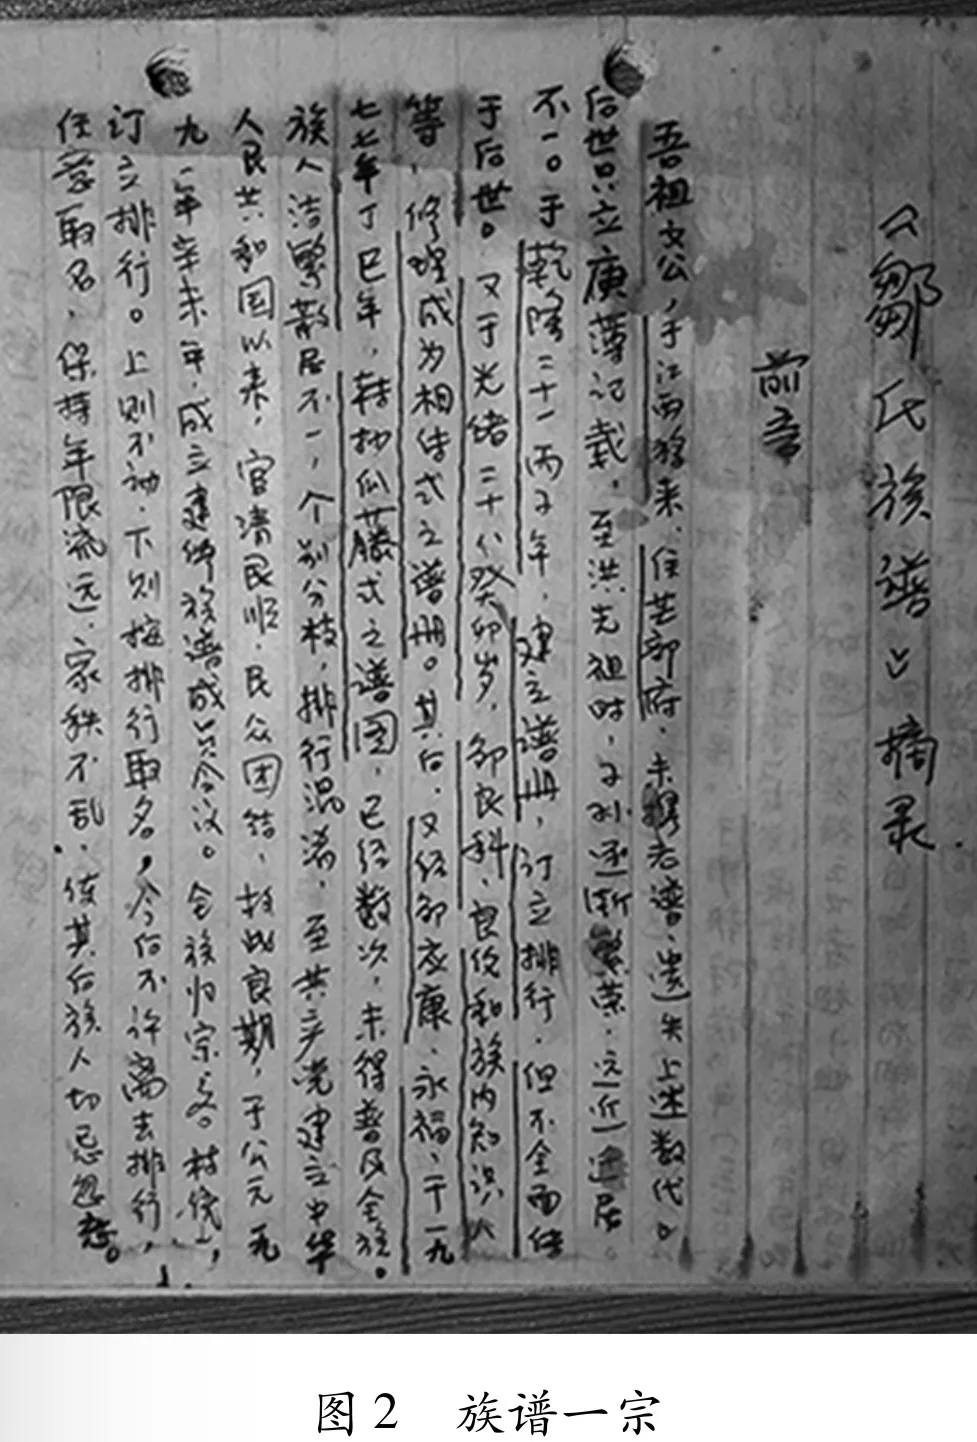 《鄒氏族谱》摘录
前言
吾祖文公，于江西移来、住芒部府，未携老谱、遗失上述数代。
后世只立庚薄记载，至洪先祖时，子孙逐渐繁荣，远近迁居
不一。于乾隆二十一丙子年，建立谱册，订立排行，但不全面传
于后世。又于光绪二十八癸卯岁，邹良科、良俊和族内知识人
等，修理成为相传式之谱册。其后，又经邹应康、永福，于一九
七七年丁巳年，转抄瓜藤式之谱图，已经数次，未得普及全族。
族人浩繁散居不一，个别分枝，排行混淆，至共产党建立中华
人民共和国以来，官清民顺，民众团结，好此良期，于公元一九
九一年辛未年，成立建修族谱成员会议。全族归宗，统一，
订立排行。上则不动，下则按排行取名，今后不许离去排行，
任意取名，保持年限流远，家秩不乱，使其后族人切忌忽卷。
图2 族谱一宗